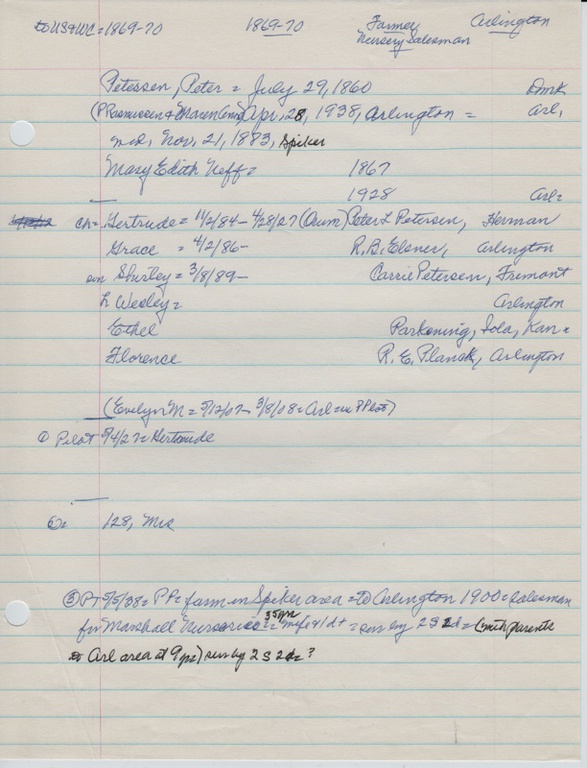 to US & WC = 1869-70 1869-70 Farmer Arlington
Nursery Salesman
Petersen, Peter = July 29, 1860 Dmk
(P Rasmussen & Maren) Apr. 28, 1938, Arlington = Arl.
md. Nov. 21, 1883, Spiker
Mary Edith Neff = 1867
1928 Arl =
ch = Gertrude = 11/2/84 - 4/28/27 (Orum) Peter L Petersen, Herman
Grace = 4/2/86 - R. B. Elsner, Arlington
sm Shirley = 3/8/89 - Carrie Petersen, Fremont
L Wesley = Arlington
Ethel Parkening, Iola, Kan =
Florence R. E. Planck, Arlington
(Evelyn M = 5/12/07 - 3/8/08 = Arl = in P Plot)
① Pilot 5/4/27 = Gertrude
128, Mrs
③ PT 5/5/38 = PP = farm in Spiker area = to Arlington 1900 = salesman
for Marshall Nurseries = 35 yrs = wife & 1 dt = surv by 2 S 2 d = (with parents
to Arl area at 9 yrs) surv by 2 S 2 d = ?